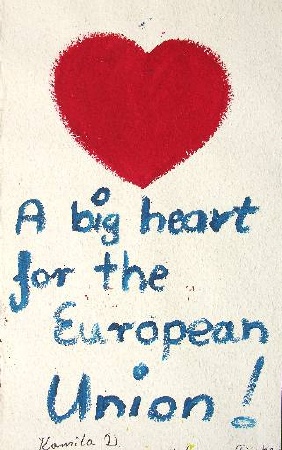 A big heart
for the
European
Union!
Kamila